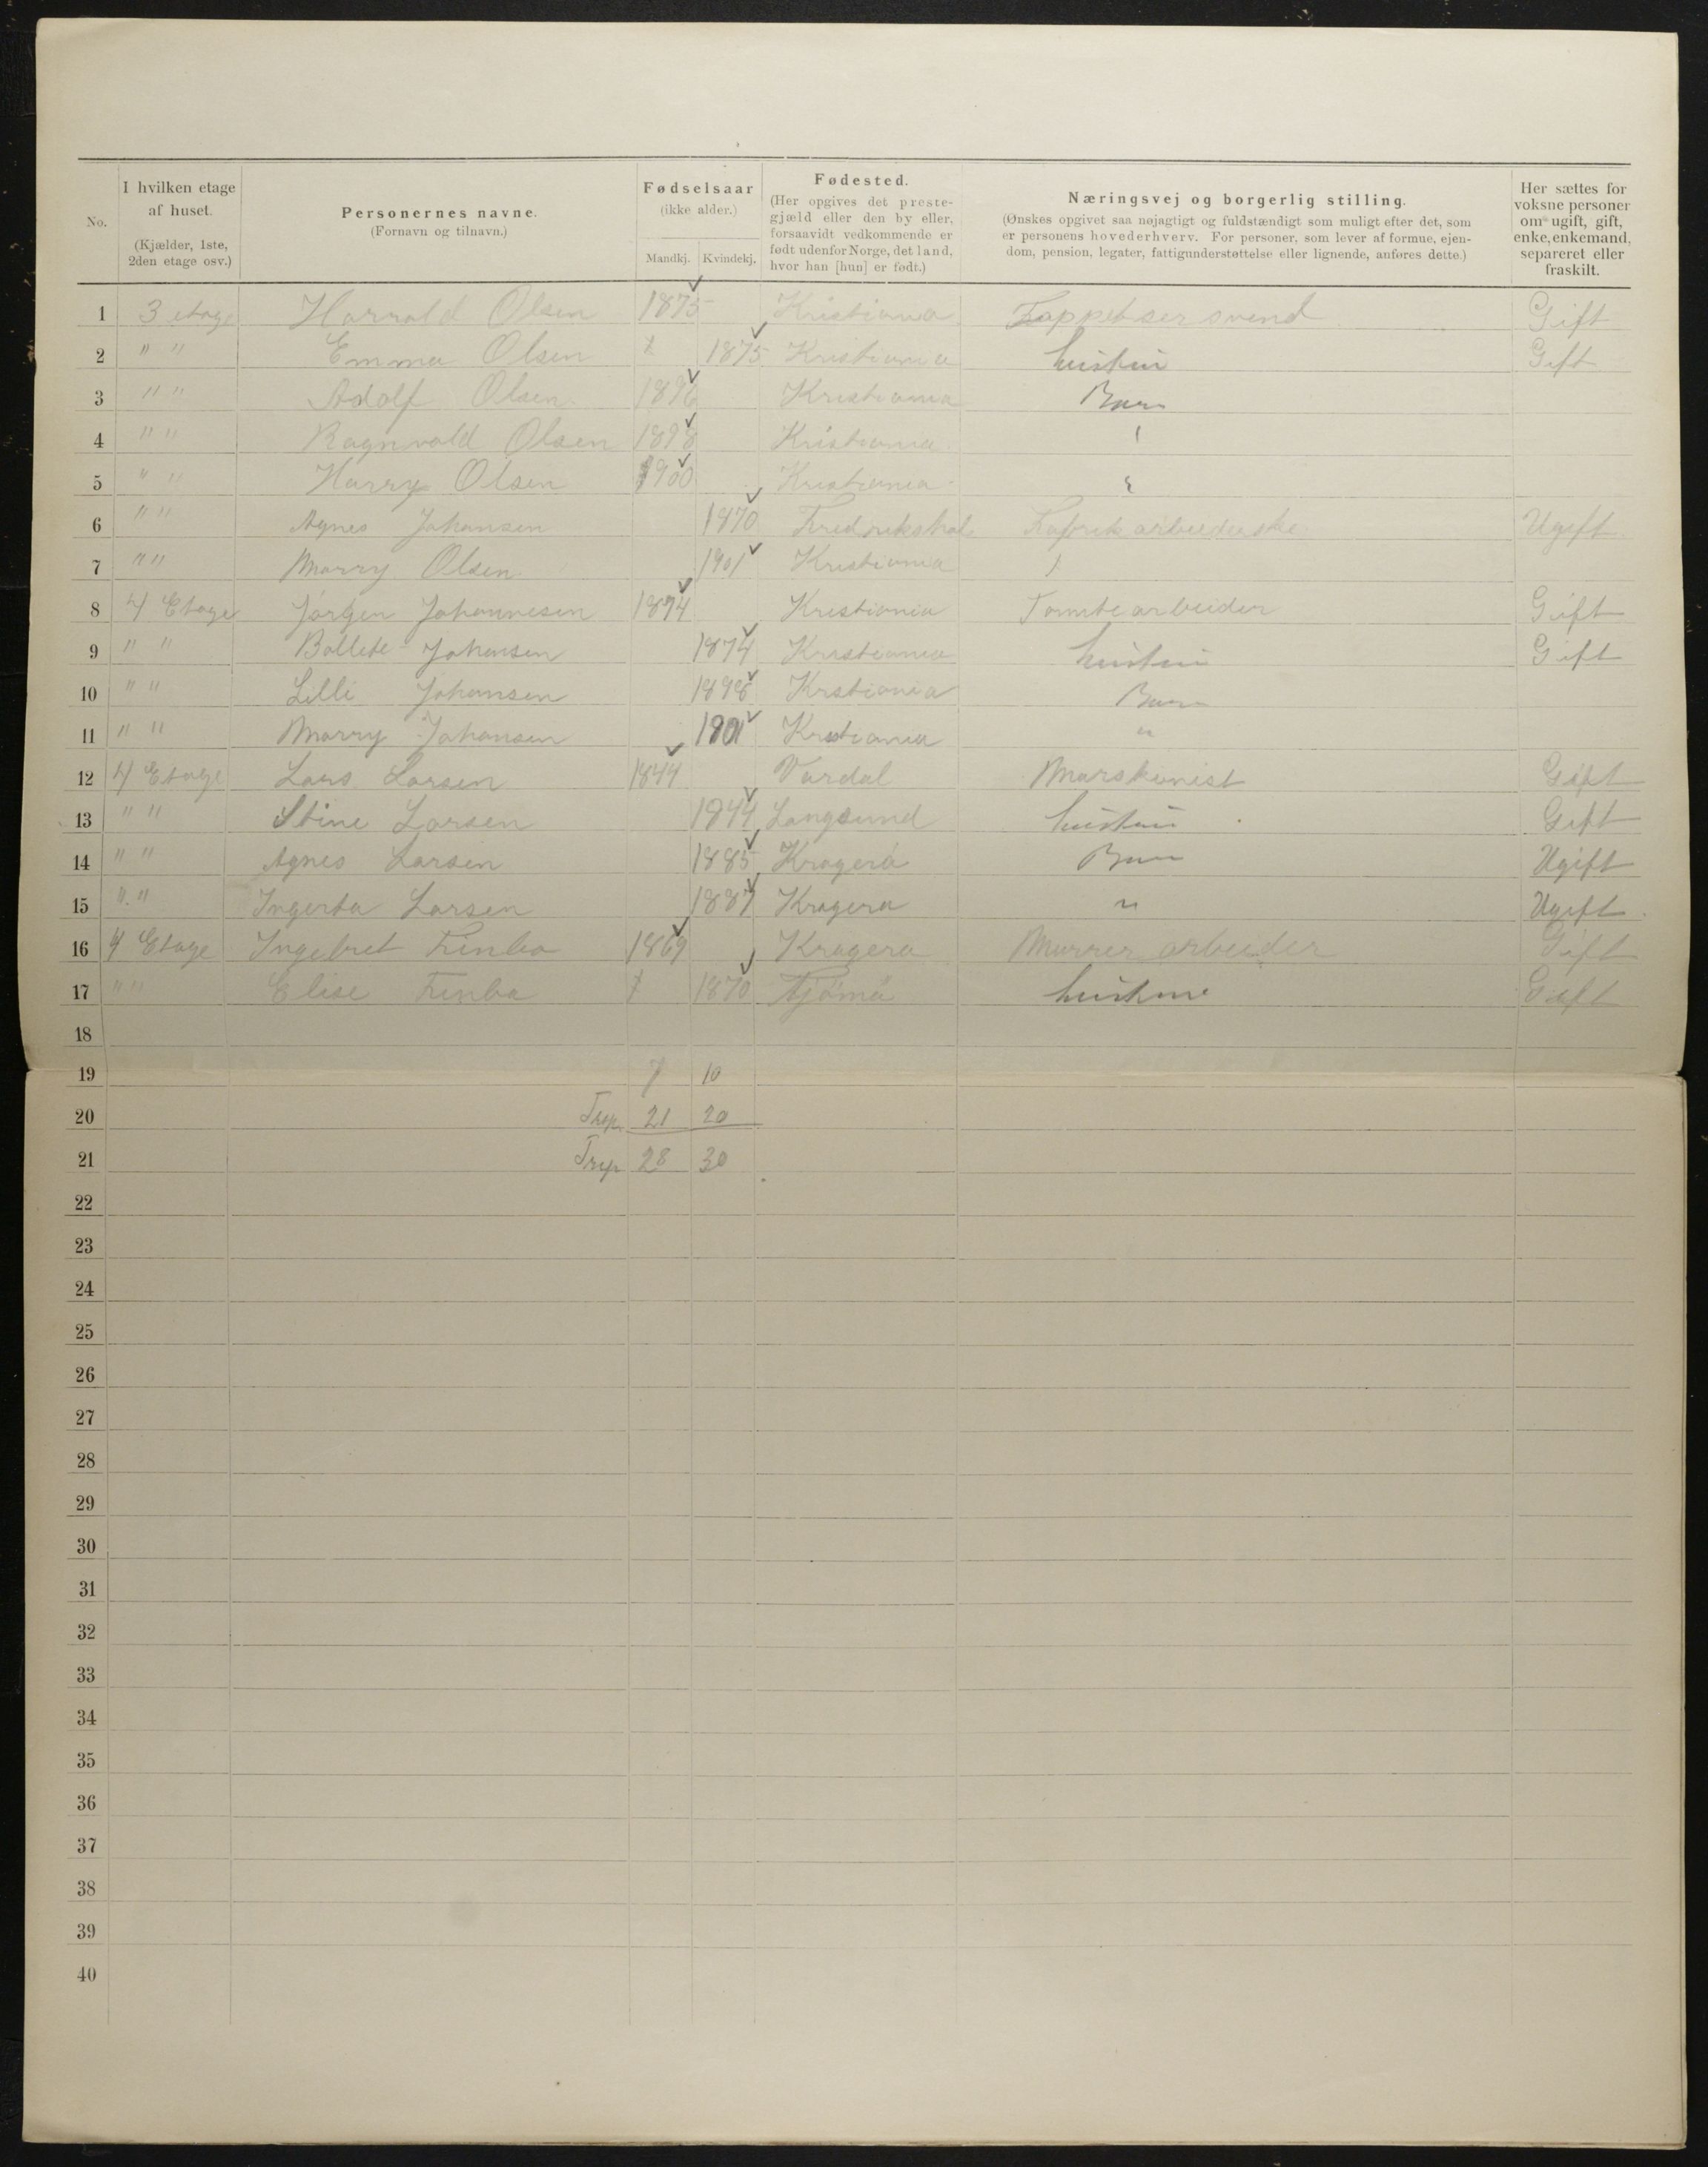 No.
I hvilken etage af huset.
(Kjælder, 1ste, 2den etage osv.)
Personernes navne.
(Fornavn og tilnavn.)
Fødselsaar
(ikke alder.)
Mandkj. Kvindekj.
Fødested.
(Her opgives det prestegjæld eller den by eller, forsaavidt vedkommende er født udenfor Norge, det land, hvor han [hun] er født.)
Næringsvej og borgerlig stilling.
(Ønskes opgivet saa nøjagtigt og fuldstændigt som muligt efter det, som er personens hovederhverv. For personer, som lever af formue, ejendom, pension, legater, fattigunderstøttelse eller lignende, anføres dette.)
Her sættes for voksne personer om ugift, gift, enke, enkemand, separeret eller fraskilt.
1 3 etage Harrald Olsen 1875 Kristiania Tappetser svend Gift
2 " " Emma Olsen 1875 Kristiania hustru Gift
3 " " Adolf Olsen 1896 Kristiania Barn
4 " " Ragnvald Olsen 1898 Kristiania "
5 " " Harry Olsen 1900 Kristiania "
6 " " Agnes Johansen 1870 Fredrikshal Fabrik arbeiderske Ugift
7 " " Marry Olsen 1901 Kristiania
8 4 Etage Jørgen Johannesen 1874 Kristiania Tomtearbeider Gift
9 " " Bollete Johansen 1874 Kristiania hustru Gift
10 " " Lilli Johansen 1898 Krstiania Barn
11 " " Marry Johansen 1901 Kristiania "
12 4 Etage Lars Larsen 1844 Vardal Marskinist Gift
13 " " Stine Larsen 1844 Langsund hustru Gift
14 " " Agnes Larsen 1885 Kragerø Barn Ugift
15 " " Ingerta Larsen 1887 Kragerø " Ugift
16 4 Etage Ingebret Finbo 1869 Kragerø Murrer arbeider Gift
17 " " Elise Finbo 1870 Tjømø hustru Gift
18
19 7 10
20 21 20
21 28 30
22
23
24
25
26
27
28
29
30
31
32
33
34
35
36
37
38
39
40